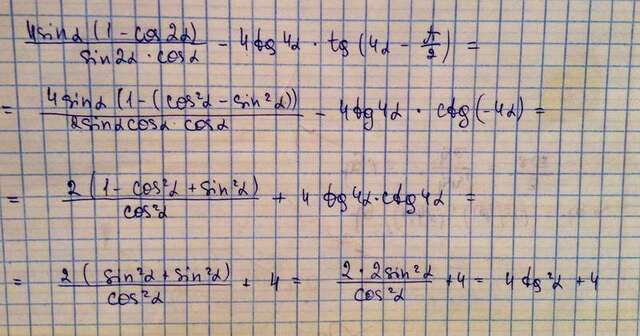 4sinα (1 - cos 2α) / sin2α · cosα - 4tg 4α · tg (4α - π/2) =
= 4sinα (1 - (cos²α - sin²α)) / 2sinαcosα · cosα - 4tg4α · ctg(-4α) =
= 2 (1 - cos²α + sin²α) / cos²α + 4 tg4α·ctg4α =
= 2 ( sin²α + sin²α) / cos²α + 4 = 2 · 2sin²α / cos²α + 4 = 4 tg²α + 4